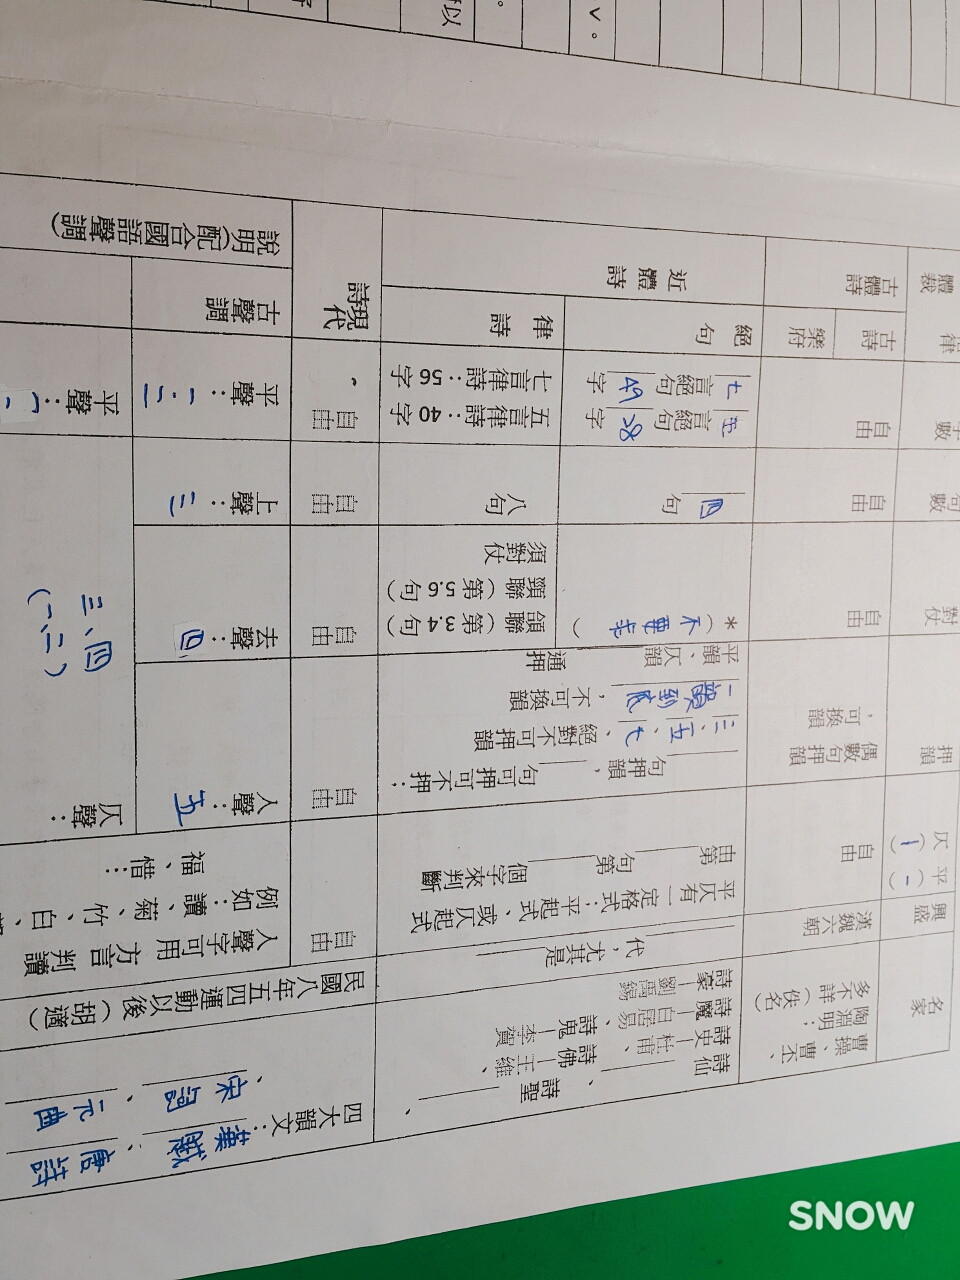 體裁
古體詩
近體詩
現代詩
說明(配合國語聲調)
古詩
樂府
絕句
律詩
古聲調
自由
七言絕句 49 字
五言絕句 28 字
七言律詩:56字
五言律詩:40字
自由
平聲:一、二
平聲:
自由
四句
八句
自由
上聲:三
對仗
自由
*(不要求)
頷聯(第3.4句)
頸聯(第5.6句)
須對仗
自由
去聲:四
三、四
(一、二)
押韻
偶數句押韻
,可換韻
句押韻, 句可押可不押:
三、五、七、絕對不可押韻
一韻到底,不可換韻
平韻、仄韻 通押
自由
入聲:五
仄聲:
平(一)
仄(|)
自由
平仄有一定格式:平起式、或仄起式
由第 句第 個字來判斷
自由
入聲字可用方言判讀
例如:讀、菊、竹、白、
福、惜…
興盛
漢魏六朝
代,尤其是
民國八年五四運動以後(胡適)
名家
曹操、曹丕、
陶淵明…
多不詳(佚名)
詩仙 、詩聖 、
詩史—杜甫、詩佛—王維、
詩魔—白居易、詩鬼—李賀
詩豪—劉禹錫
四大韻文:漢賦、唐詩
、宋詞、元曲
以
。
SNOW